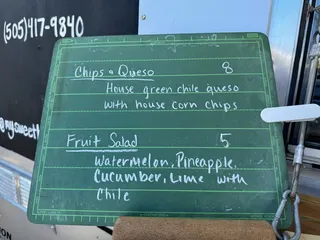 (505)417-9840
Chips + Queso 8
House green chile queso
with house corn chips
Fruit Salad 5
Watermelon, Pineapple,
Cucumber, Lime with
Chile